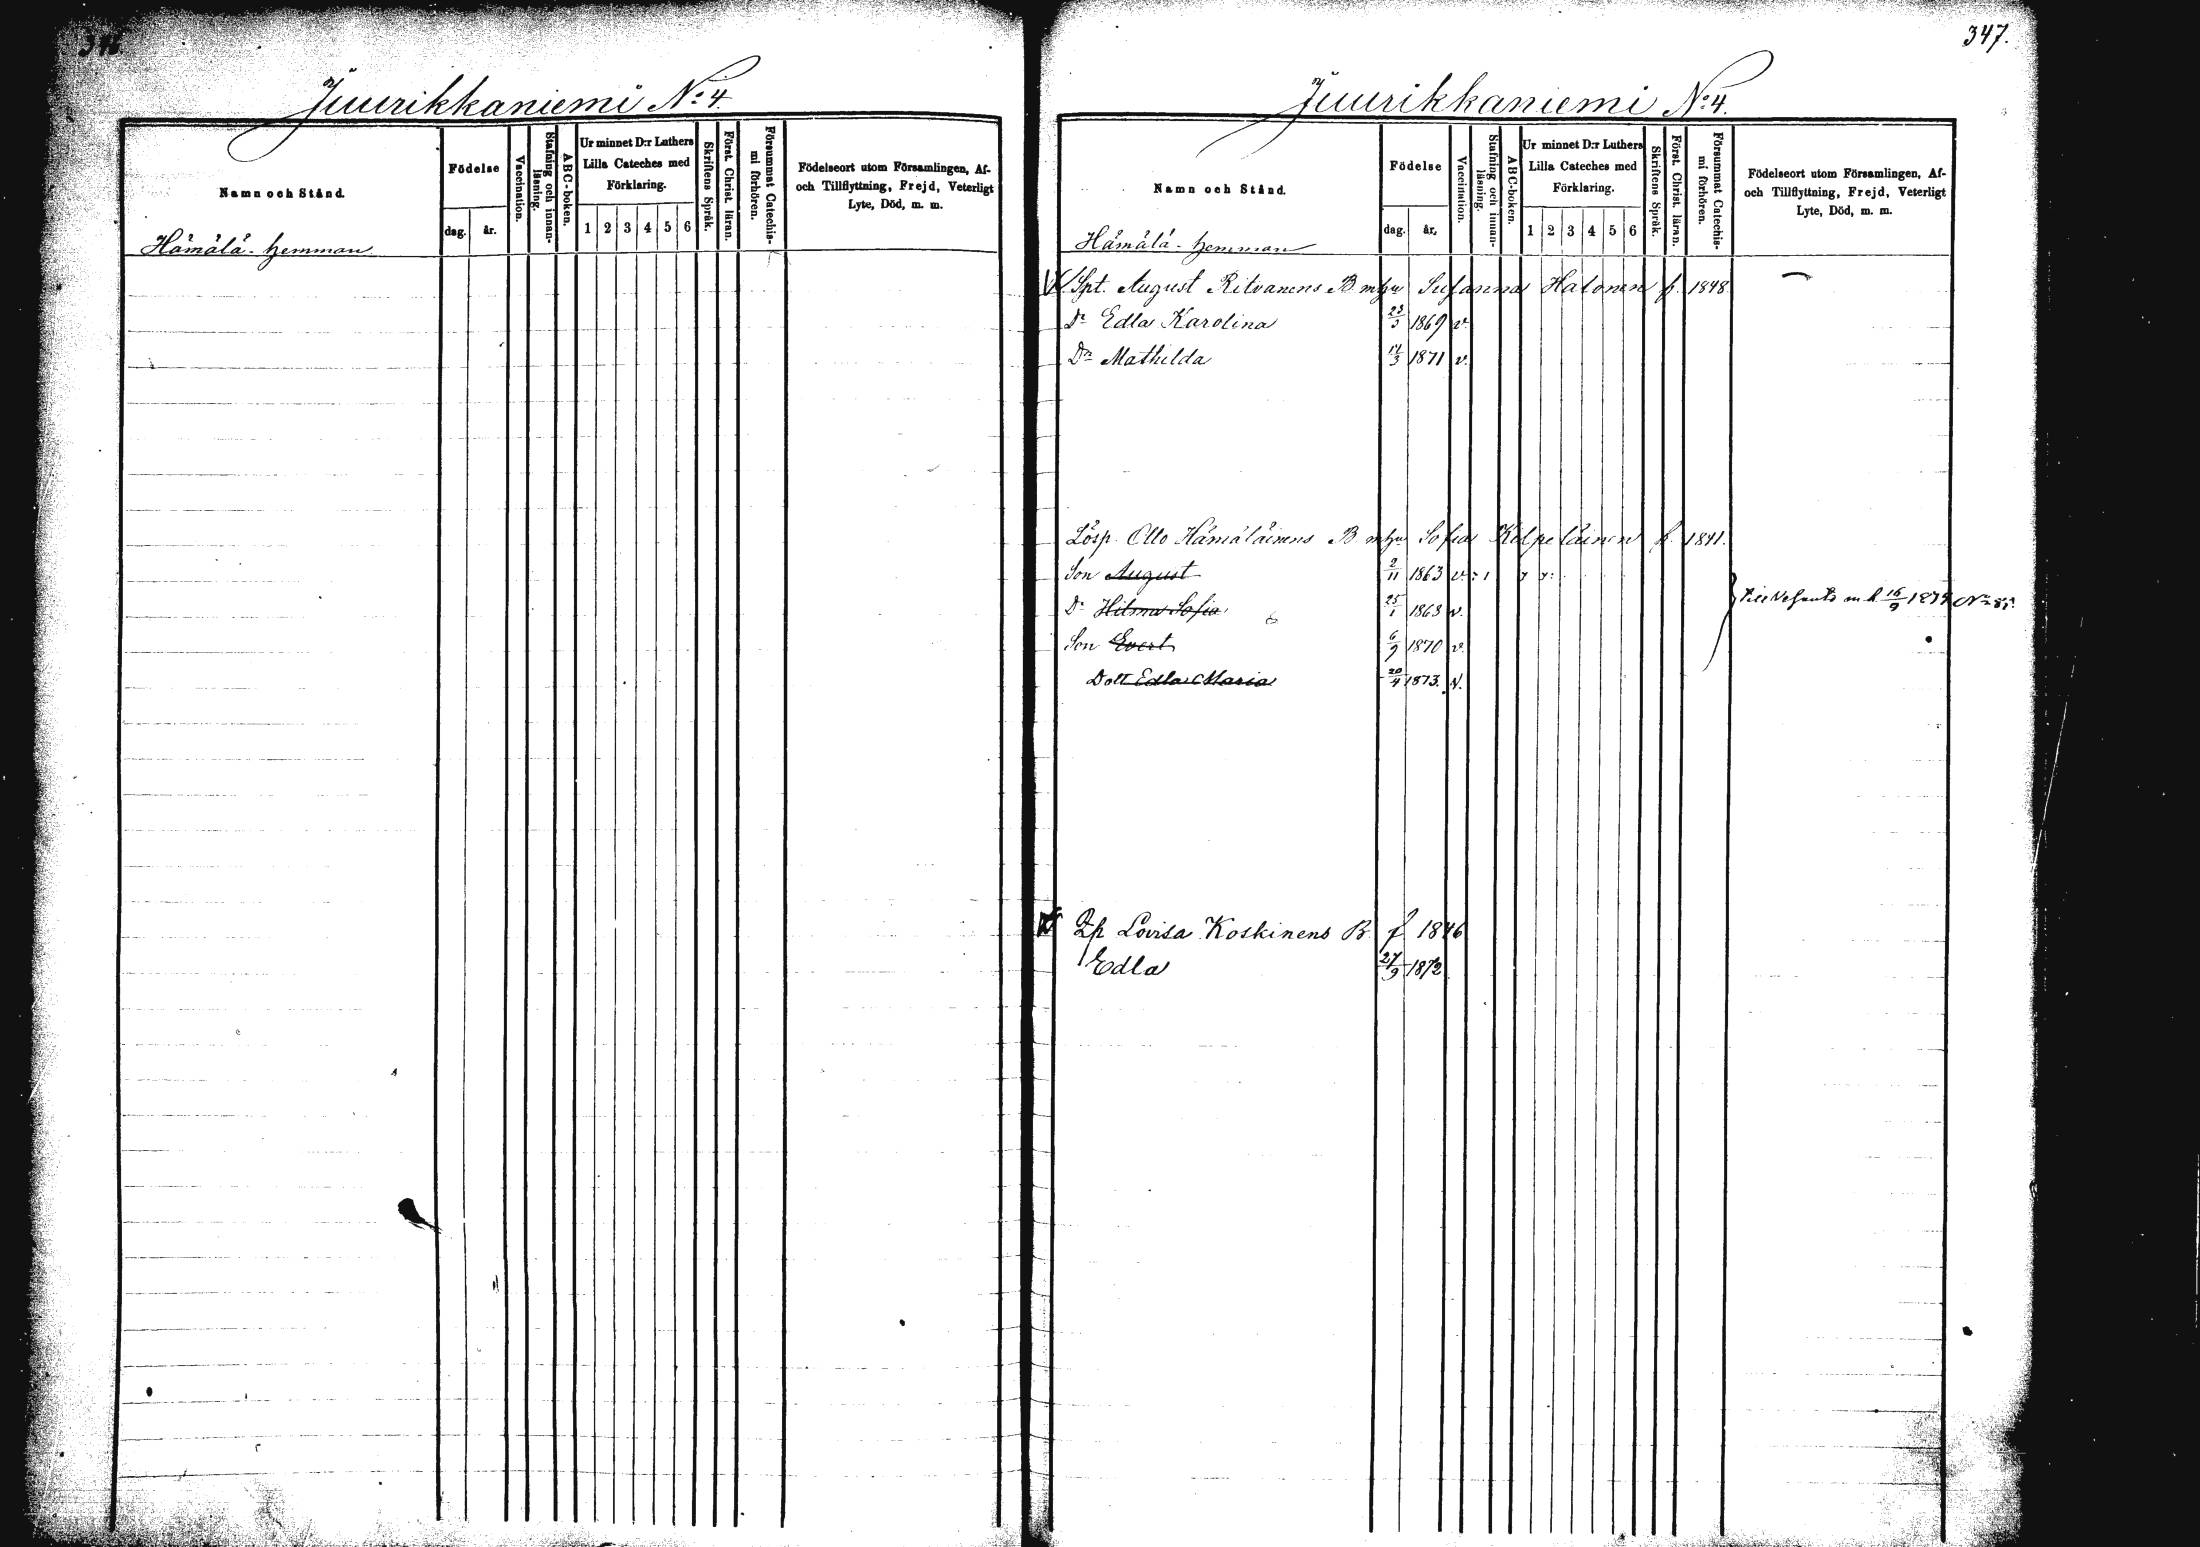 346.
Juurikkaniemi N:o 4.
Namn och Stånd.
Födelse
dag.
år.
Vaccination.
Stafning och innanläsning.
ABC-boken.
Ur minnet D:r Luthers
Lilla Cateches med
Förklaring.
1 2 3 4 5 6
Skriftens Språk.
Först. Christ. läran.
Försummat Catechismi förhören.
Födelseort utom Församlingen, Af-
och Tillflyttning, Frejd, Veterligt
Lyte, Död, m. m.
Hämälä-hemman
347.
Juurikkaniemi N:o 4.
Namn och Stånd.
Födelse
dag.
år.
Vaccination.
Stafning och innanläsning.
ABC-boken.
Ur minnet D:r Luthers
Lilla Cateches med
Förklaring.
1 2 3 4 5 6
Skriftens Språk.
Först. Christ. läran.
Försummat Catechismi förhören.
Födelseort utom Församlingen, Af-
och Tillflyttning, Frejd, Veterligt
Lyte, Död, m. m.
Hämälä-hemman
Spt. August Ritvanens B m hu Susanna Halonen f. 1848
Dr Edla Karolina 23/3 1869 v.
Dr Mathilda 14/3 1871 v.
Lösp. Otto Hämäläinens B m hu Sofia Kilpeläinen f. 1841.
Son August 2/11 1863 v.
Dr Hilma Sofia 25/1 1868 v.
Till Vesanto m. b. 16/9 1874 No 85.
Son Evert 6/9 1870 v.
Dott Edla Maria 20/4 1873. v.
Lp Lovisa Koskinens B. f 1846
Edla 27/9 1872